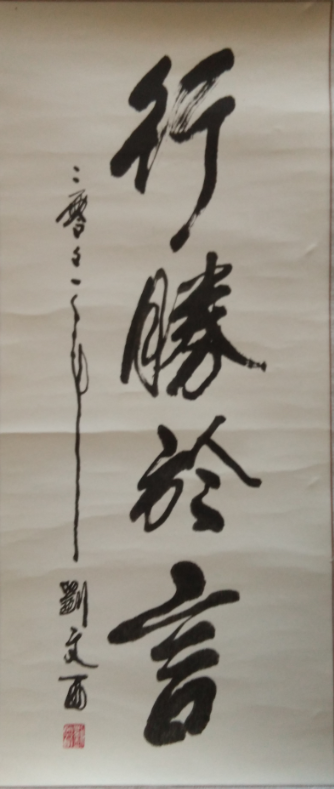 行勝於言
二零零一年 劉文西